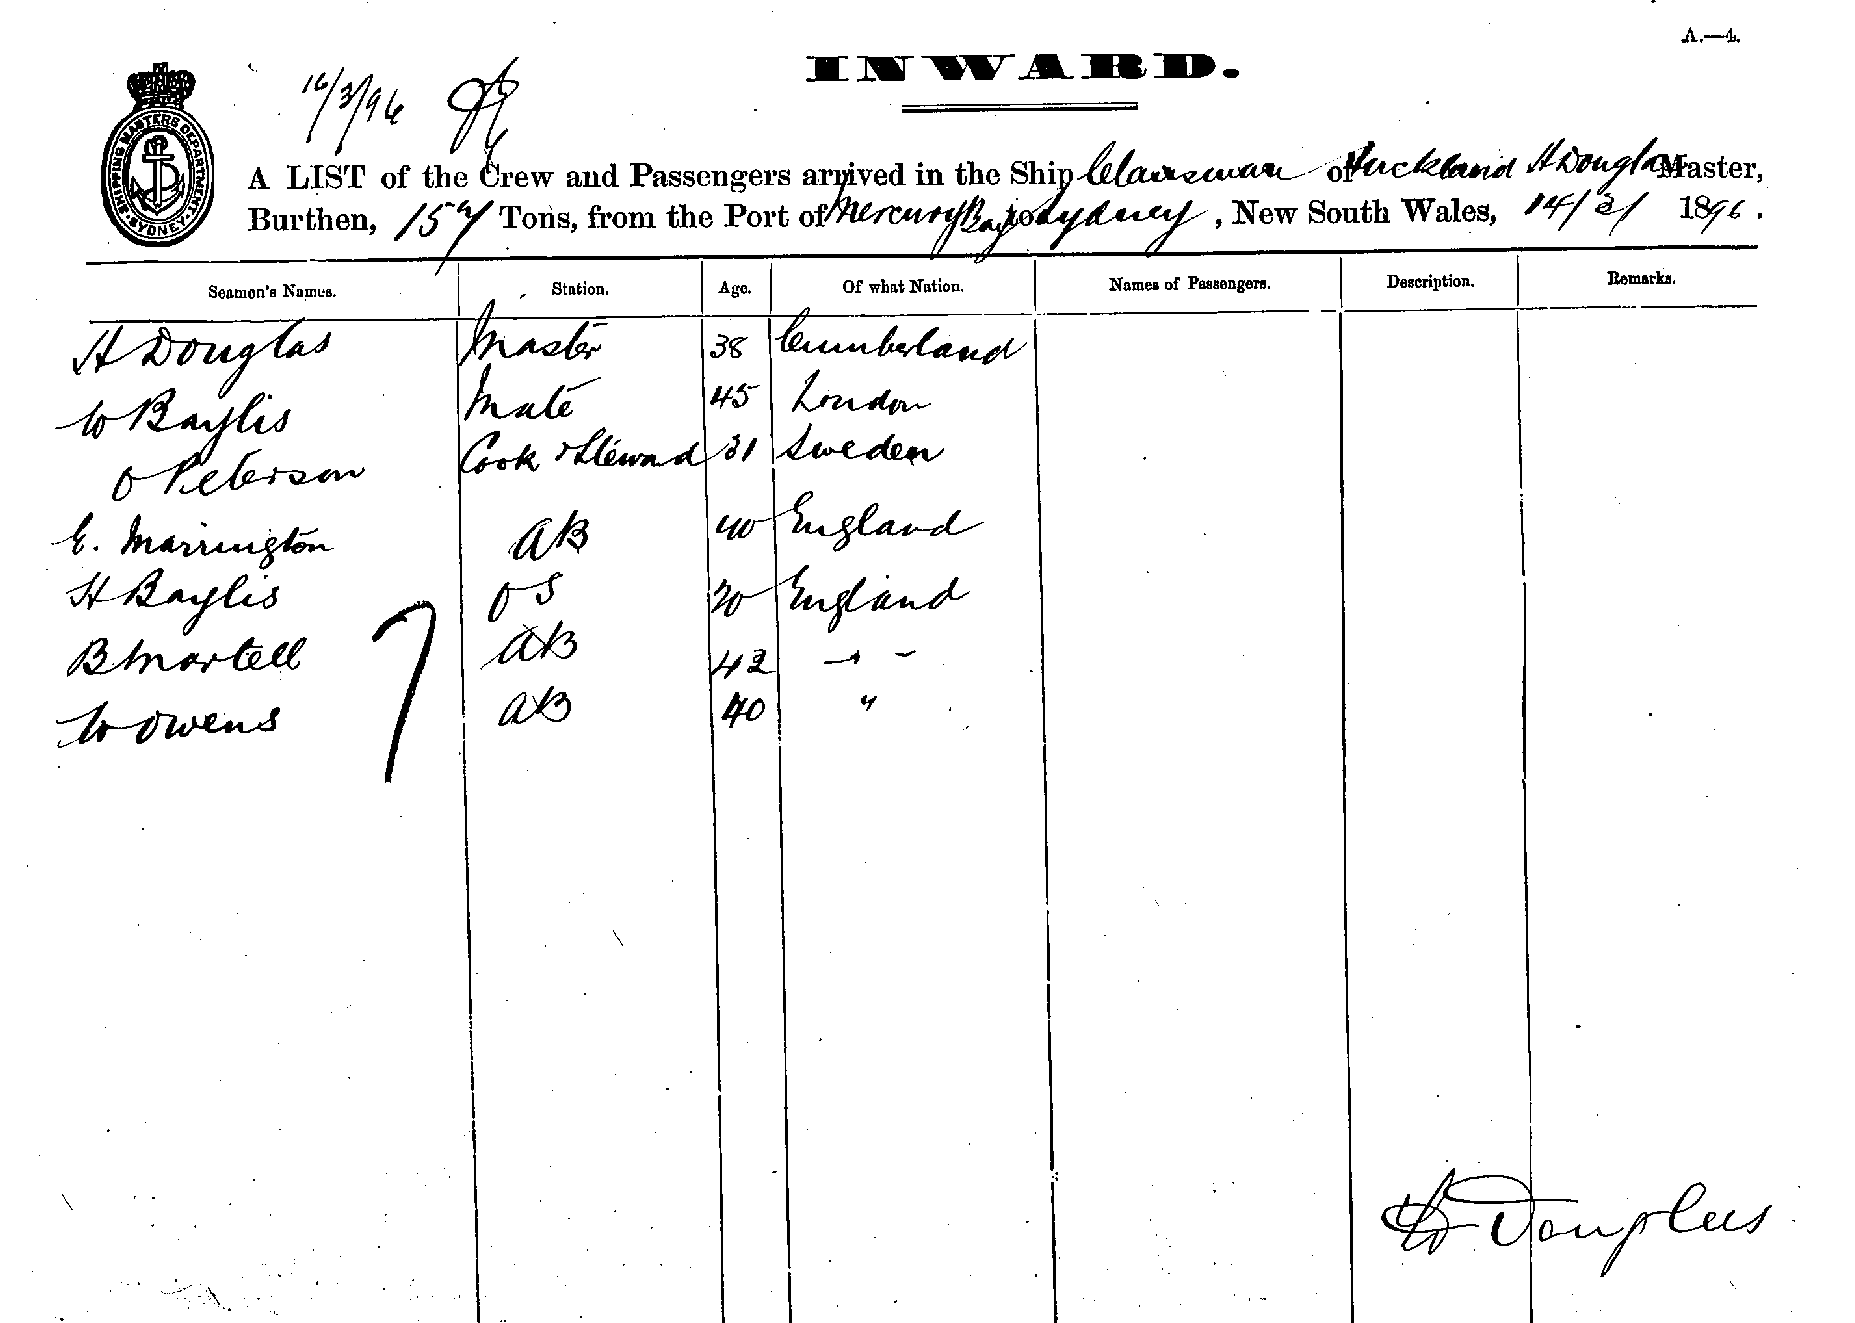 A.—4.
INWARD.
16/3/96
SHIPPING MASTERS DEPARTMENT. SYDNEY.
A LIST of the Crew and Passengers arrived in the Ship Clansman of Auckland H Douglas Master,
Burthen, 157 Tons, from the Port of Mercury Bay to Sydney, New South Wales, 14/3/ 1896.
Seamen's Names. Station. Age. Of what Nation. Names of Passengers. Description. Remarks.
H Douglas Master 38 Cumberland
W Baylis Mate 45 London
O Peterson Cook & Steward 31 Sweden
E. Marrington AB 40 England
H Baylis OS 20 England
B Martell AB 42 " "
W Owens AB 40 "
7
H Douglas